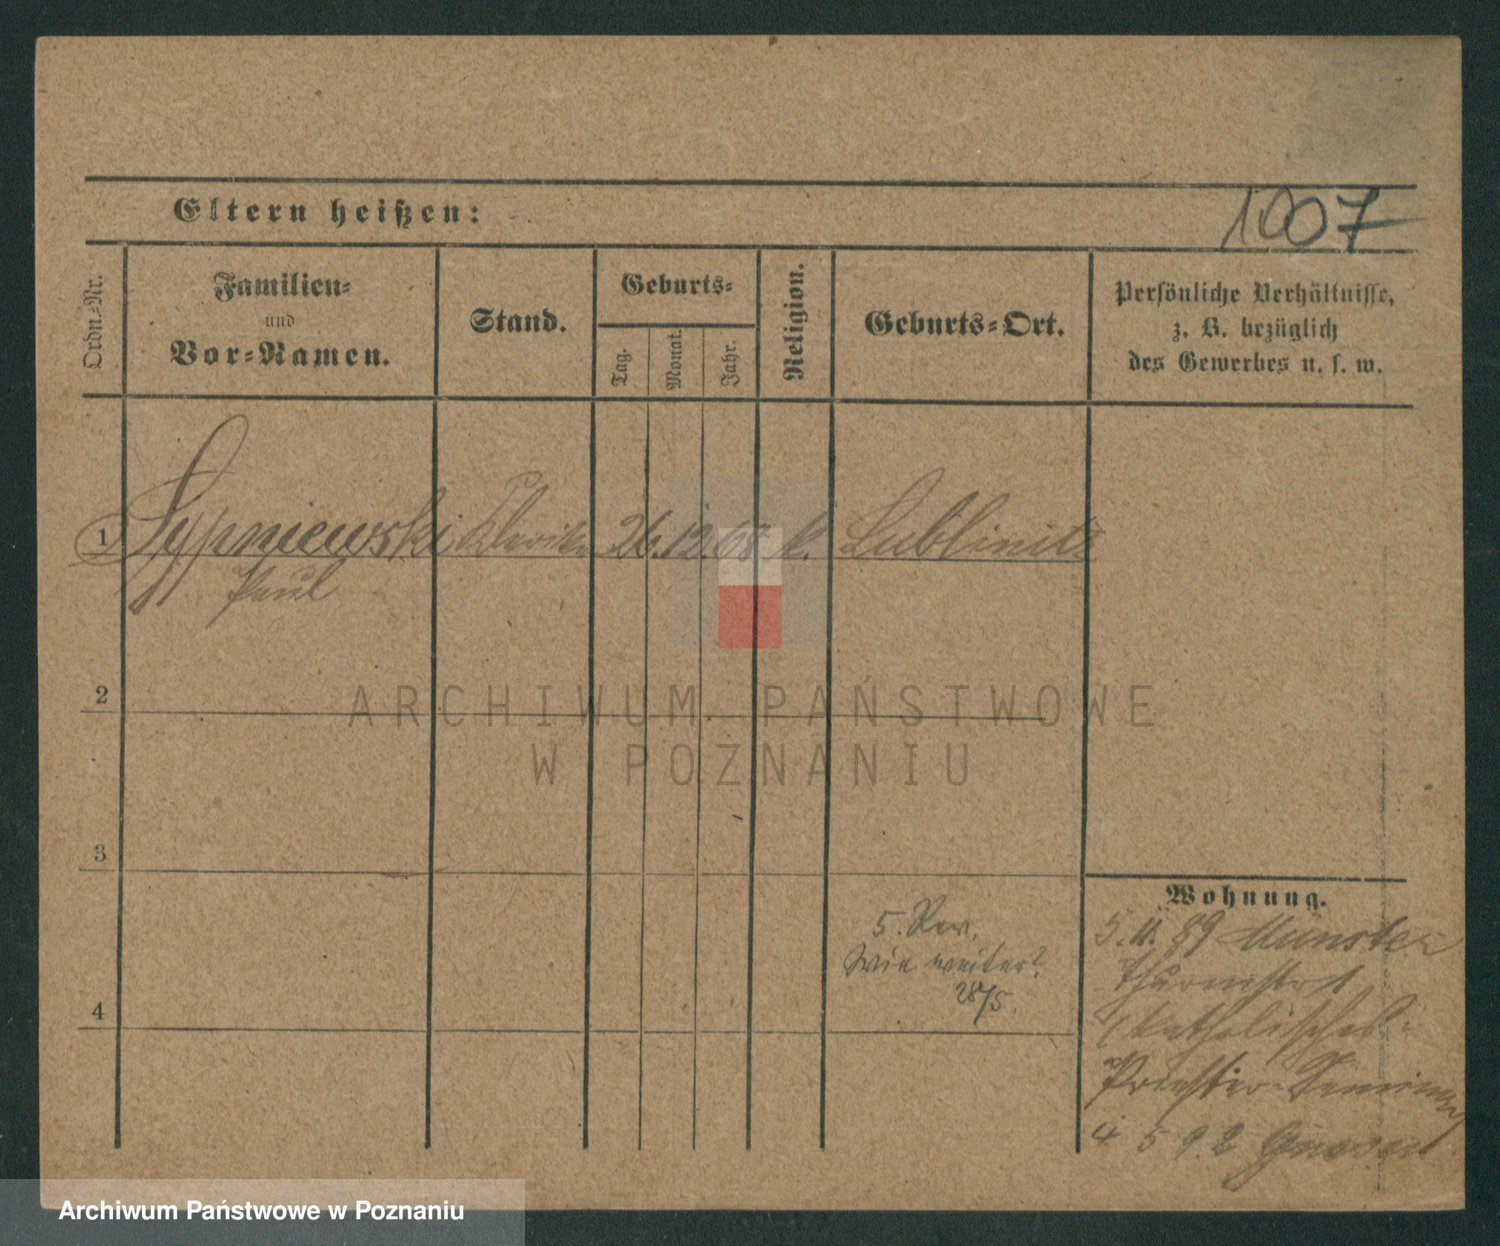 Eltern heißen:
1007
Ordn.-Nr.
Familien-
und
Vor-Namen.
Stand.
Geburts-
Tag.
Monat.
Jahr.
Religion.
Geburts-Ort.
Persönliche Verhältnisse,
z. B. bezüglich
des Gewerbes u. s. w.
1 Sypniewski Kleriker 26. 12. 68 k. Lublinitz
Paul
2
3
4
5. Rev.
Wie weiter?
28/5.
Wohnung.
5. 11. 89 Münster
Thurmstr 1
(katholisches
Priester-Seminar)
4 5 92 Gnesen
ARCHIWUM PAŃSTWOWE
W POZNANIU
Archiwum Państwowe w Poznaniu